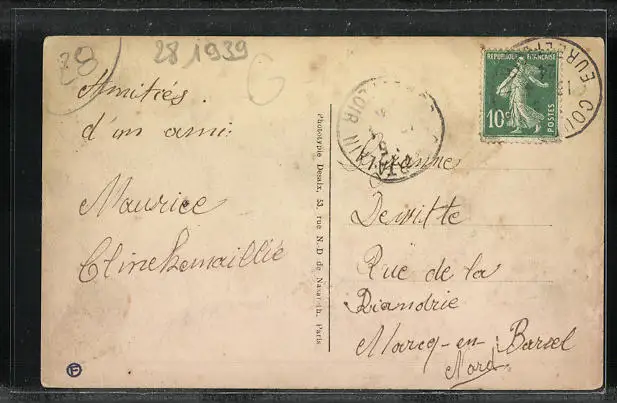 28
28 1939
G
Amitiés
d'un ami
Maurice
Clinckemaillie
Phototypie Desaix, 53, rue N.-D de Nazareth, Paris
RÉPUBLIQUE FRANÇAISE
10c
POSTES
EURE ET
COU
LOIR
Dewitte
Rue de la
Briandrie
Marcq-en-Barœl
Nord